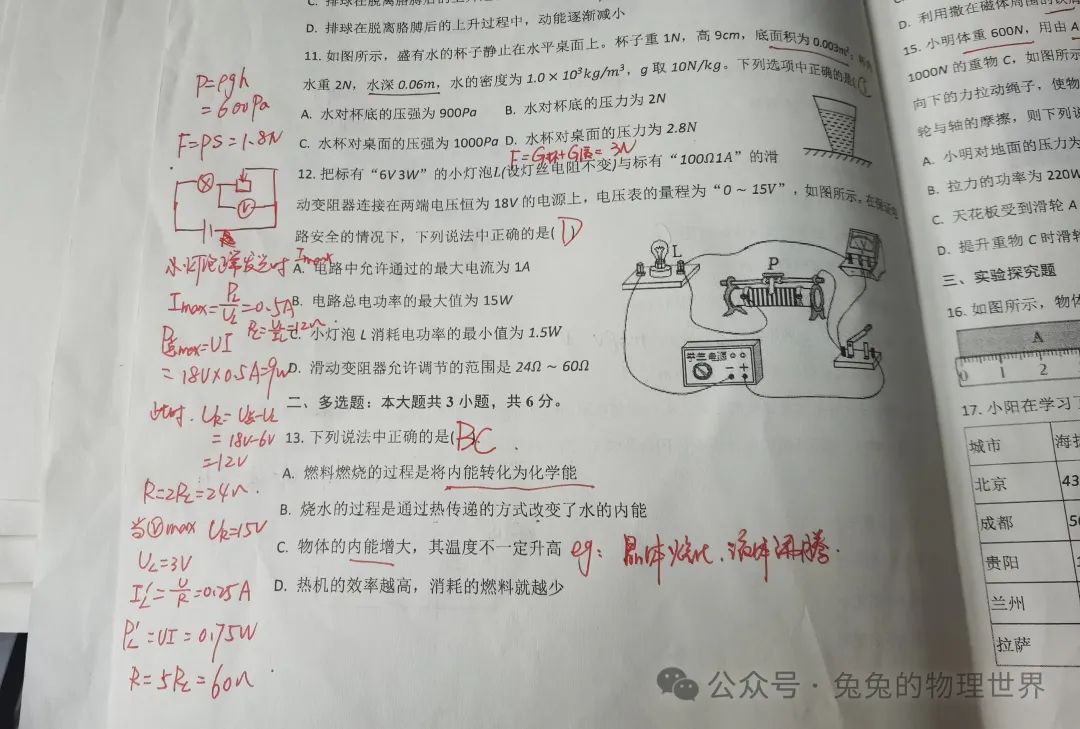 C. 排球在脱离胳膊后的上升
D. 排球在脱离胳膊后的上升过程中，动能逐渐减小
11. 如图所示，盛有水的杯子静止在水平桌面上。杯子重 1N，高 9cm，底面积为 0.003m²；
水重 2N，水深 0.06m，水的密度为 1.0 × 10³kg/m³，g 取 10N/kg。下列选项中正确的是( C
A. 水对杯底的压强为 900Pa
B. 水对杯底的压力为 2N
C. 水杯对桌面的压强为 1000Pa
D. 水杯对桌面的压力为 2.8N
P=ρgh
=600Pa
F=PS=1.8N
F=G杯+G液=3N
12. 把标有“6V 3W”的小灯泡L(设灯丝电阻不变)与标有“100Ω1A”的滑
动变阻器连接在两端电压恒为 18V 的电源上，电压表的量程为“0 ~ 15V”，如图所示。在保证电
路安全的情况下，下列说法中正确的是( D )
A. 电路中允许通过的最大电流为 1A
B. 电路总电功率的最大值为 15W
C. 小灯泡 L 消耗电功率的最小值为 1.5W
D. 滑动变阻器允许调节的范围是 24Ω ~ 60Ω
L
P
V
学生电源
V
小灯泡正常发光时 Imax
Imax=PL/UL=0.5A
=12Ω
P总max=UI
=18V×0.5A=9W
此时. UR=U总-UL
=18V-6V
=12V
R=2RL=24Ω.
当Ⓥmax UR=15V
UL=3V
IL'=U/R=0.25A
PL'=UI=0.75W
R=5RL=60Ω.
二、多选题：本大题共 3 小题，共 6 分。
13. 下列说法中正确的是( BC
A. 燃料燃烧的过程是将内能转化为化学能
B. 烧水的过程是通过热传递的方式改变了水的内能
C. 物体的内能增大，其温度不一定升高 eg：晶体熔化、液体沸腾.
D. 热机的效率越高，消耗的燃料就越少
D. 利用撒在磁体周围的铁屑
15. 小明体重 600N，用由 A
1000N 的重物 C，如图所示
向下的力拉动绳子，使物
轮与轴的摩擦，则下列说
A. 小明对地面的压力为
B. 拉力的功率为 220W
C. 天花板受到滑轮 A
D. 提升重物 C 时滑轮
三、实验探究题
16. 如图所示，物体
A
0 1 2
17. 小阳在学习了
城市 海拔
北京 43
成都 50
贵阳
兰州
拉萨
公众号 · 兔兔的物理世界